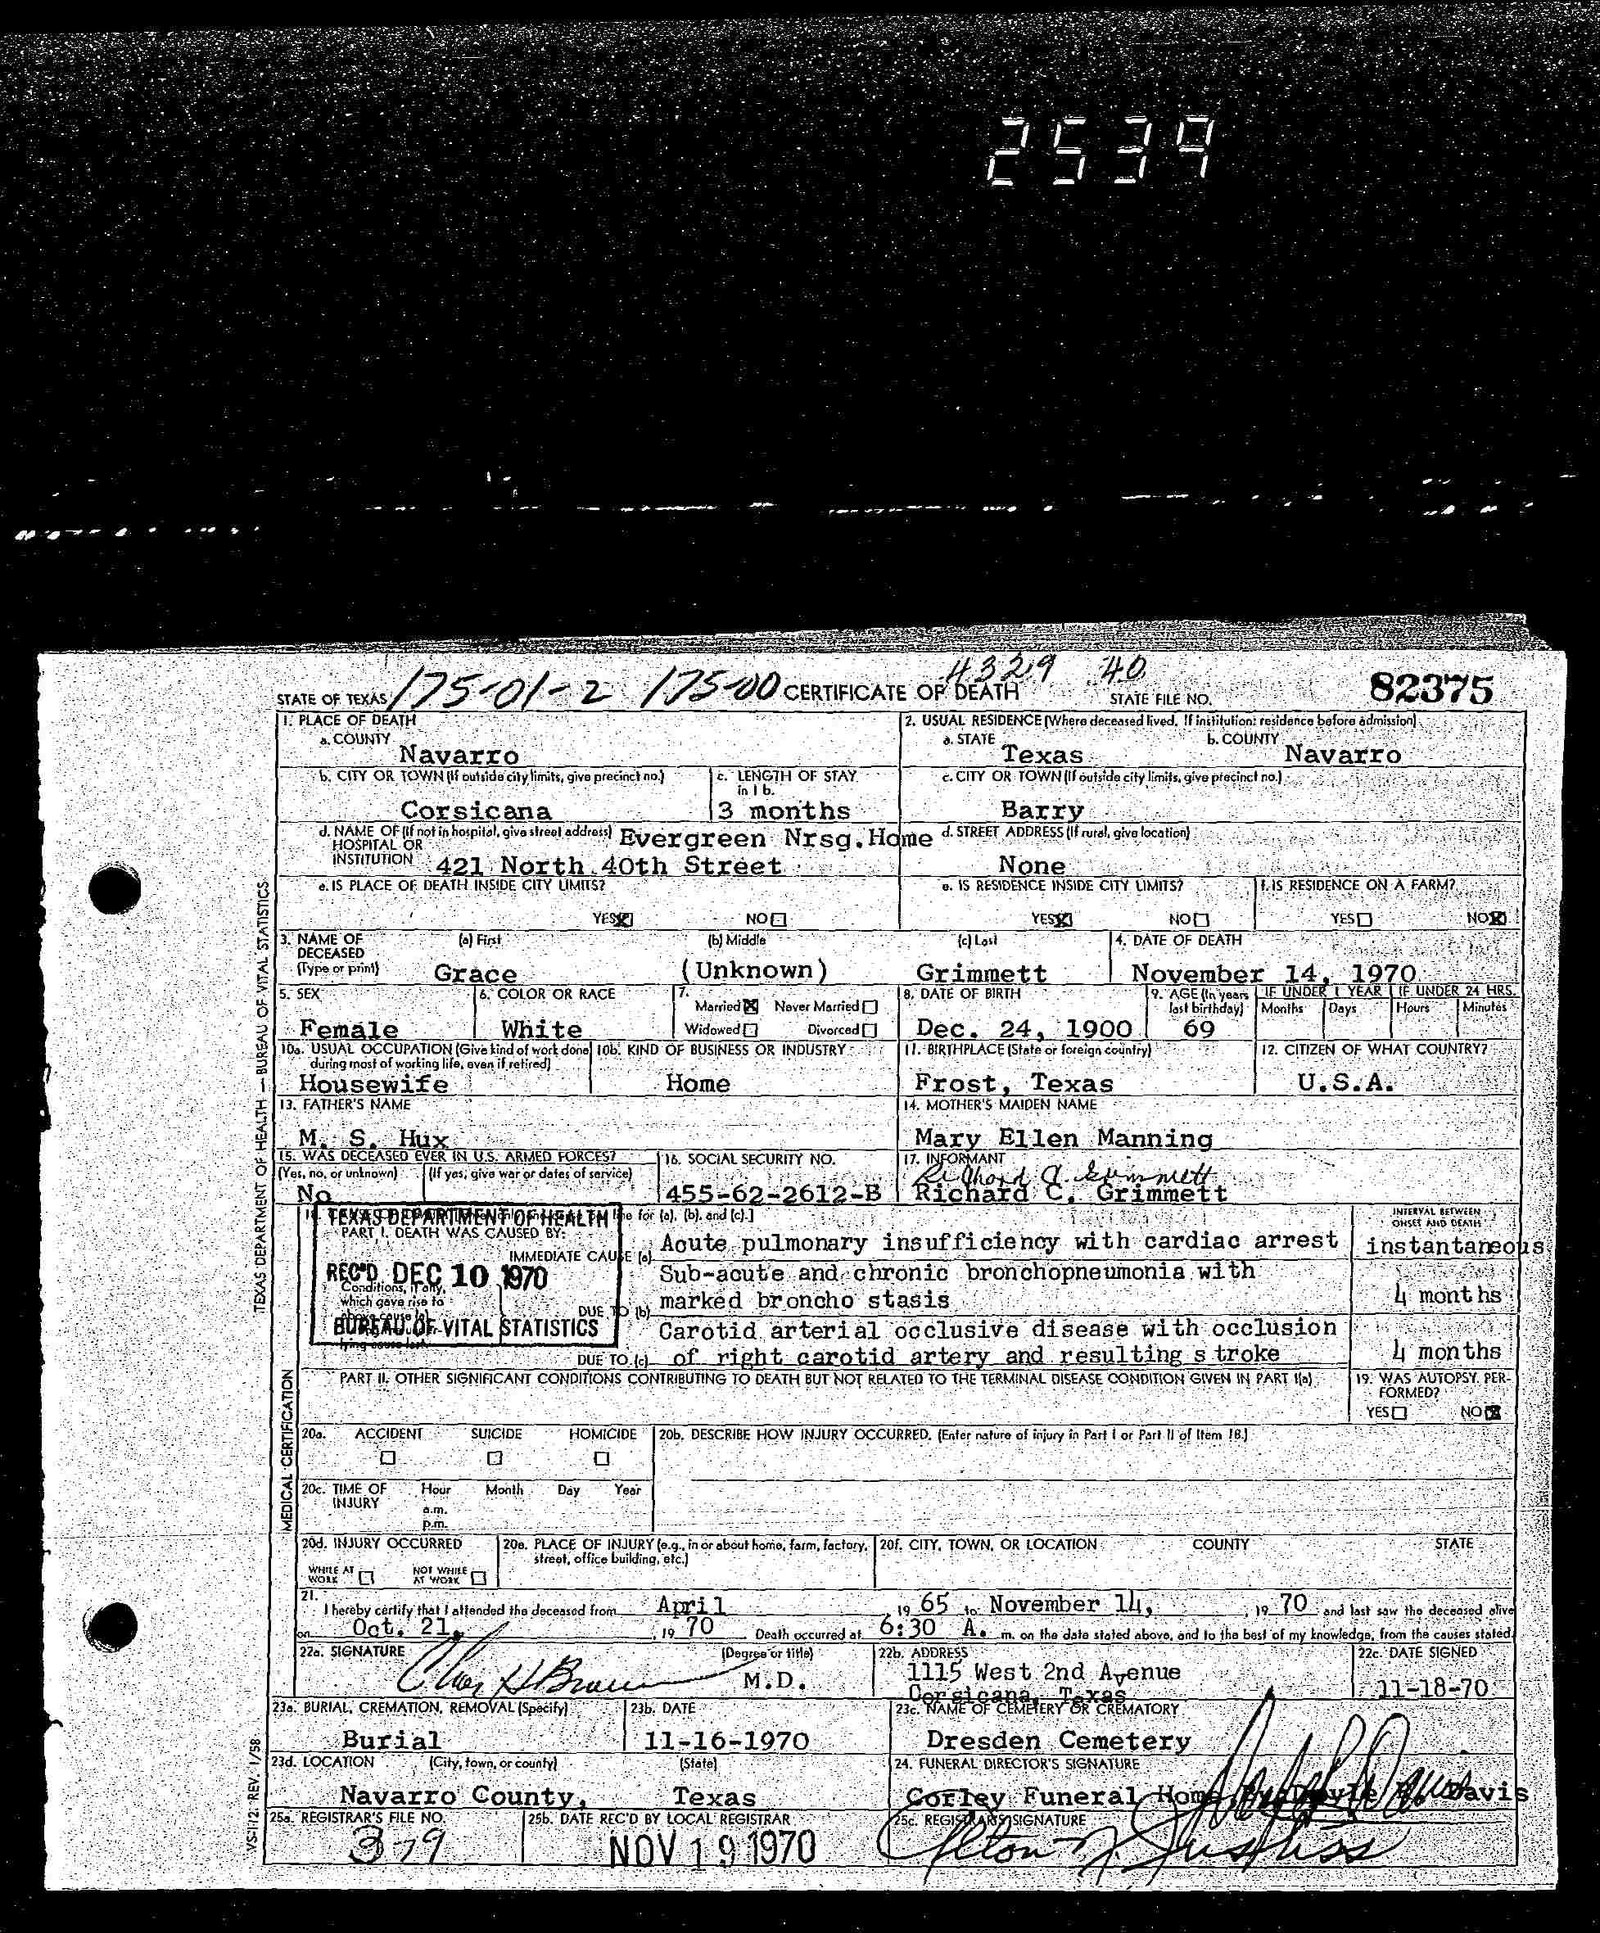 2539
4329 40
STATE OF TEXAS 175-01-2 175-00 CERTIFICATE OF DEATH STATE FILE NO. 82375
1. PLACE OF DEATH 2. USUAL RESIDENCE (Where deceased lived. If institution: residence before admission)
a. COUNTY Navarro a. STATE Texas b. COUNTY Navarro
b. CITY OR TOWN (If outside city limits, give precinct no.) c. LENGTH OF STAY in 1 b. c. CITY OR TOWN (If outside city limits, give precinct no.)
Corsicana 3 months Barry
d. NAME OF (If not in hospital, give street address) HOSPITAL OR INSTITUTION Evergreen Nrsg.Home d. STREET ADDRESS (If rural, give location)
421 North 40th Street None
e. IS PLACE OF DEATH INSIDE CITY LIMITS? e. IS RESIDENCE INSIDE CITY LIMITS? f. IS RESIDENCE ON A FARM?
YES NO YES NO YES NO
3. NAME OF DECEASED (Type or print) (a) First (b) Middle (c) Last 4. DATE OF DEATH
Grace (Unknown) Grimmett November 14, 1970
5. SEX 6. COLOR OR RACE 7. Married Never Married 8. DATE OF BIRTH 9. AGE (In years last birthday) IF UNDER 1 YEAR IF UNDER 24 HRS.
Months Days Hours Minutes
Female White Widowed Divorced Dec. 24, 1900 69
10a. USUAL OCCUPATION (Give kind of work done during most of working life, even if retired) 10b. KIND OF BUSINESS OR INDUSTRY 11. BIRTHPLACE (State or foreign country) 12. CITIZEN OF WHAT COUNTRY?
Housewife Home Frost, Texas U.S.A.
13. FATHER'S NAME 14. MOTHER'S MAIDEN NAME
M. S. Hux Mary Ellen Manning
15. WAS DECEASED EVER IN U.S. ARMED FORCES? 16. SOCIAL SECURITY NO. 17. INFORMANT
(Yes, no, or unknown) (If yes, give war or dates of service) Richard C. Grimmett
No 455-62-2612-B Richard C. Grimmett
TEXAS DEPARTMENT OF HEALTH line for (a), (b), and (c).] INTERVAL BETWEEN ONSET AND DEATH
PART I. DEATH WAS CAUSED BY:
IMMEDIATE CAUSE (a) Acute pulmonary insufficiency with cardiac arrest instantaneous
REC'D DEC 10 1970
Conditions, if any, which gave rise to
Sub-acute and chronic bronchopneumonia with
DUE TO (b) marked broncho stasis 4 months
BUREAU OF VITAL STATISTICS
Carotid arterial occlusive disease with occlusion
DUE TO (c) of right carotid artery and resulting stroke 4 months
PART II. OTHER SIGNIFICANT CONDITIONS CONTRIBUTING TO DEATH BUT NOT RELATED TO THE TERMINAL DISEASE CONDITION GIVEN IN PART I(a) 19. WAS AUTOPSY PERFORMED?
YES NO
20a. ACCIDENT SUICIDE HOMICIDE 20b. DESCRIBE HOW INJURY OCCURRED. (Enter nature of injury in Part I or Part II of Item 18.)
20c. TIME OF INJURY Hour Month Day Year
a.m.
p.m.
20d. INJURY OCCURRED 20e. PLACE OF INJURY (e.g., in or about home, farm, factory, street, office building, etc.) 20f. CITY, TOWN, OR LOCATION COUNTY STATE
WHILE AT WORK NOT WHILE AT WORK
21. I hereby certify that I attended the deceased from April 19 65 to November 14, 19 70 and last saw the deceased alive
on Oct. 21, 19 70 Death occurred at 6:30 A. m. on the date stated above, and to the best of my knowledge, from the causes stated.
22a. SIGNATURE (Degree or title) M.D. 22b. ADDRESS 22c. DATE SIGNED
1115 West 2nd Avenue
Corsicana, Texas 11-18-70
23a. BURIAL, CREMATION, REMOVAL (Specify) 23b. DATE 23c. NAME OF CEMETERY OR CREMATORY
Burial 11-16-1970 Dresden Cemetery
23d. LOCATION (City, town, or county) (State) 24. FUNERAL DIRECTOR'S SIGNATURE
Navarro County, Texas Corley Funeral Home Doyle Davis
25a. REGISTRAR'S FILE NO. 25b. DATE REC'D BY LOCAL REGISTRAR 25c. REGISTRAR'S SIGNATURE
379 NOV 19 1970
TEXAS DEPARTMENT OF HEALTH — BUREAU OF VITAL STATISTICS
MEDICAL CERTIFICATION
VS-112. REV. 1/58